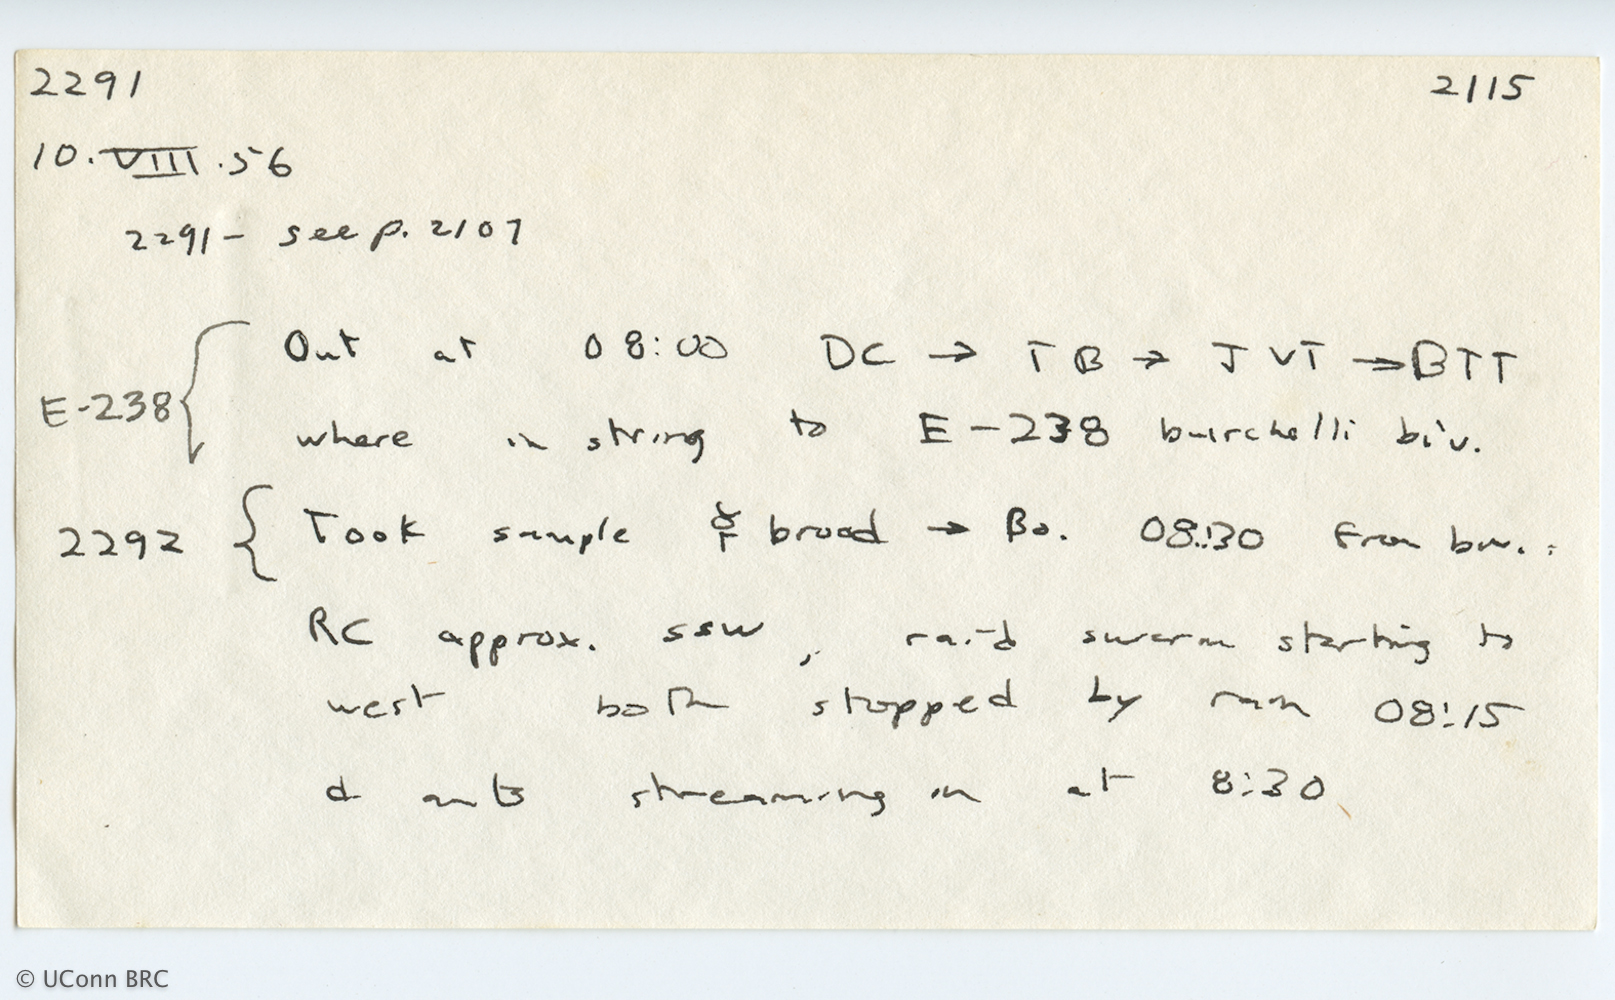 2291 2115
10.VIII.56
2291 - see p. 2107
Out at 08:00 DC → TB → JVT → BTT
E-238 { where in string to E-238 burchelli biv.
2292 { Took sample ☿ brood → Bo. 08:30 From biv. :
RC approx. SSW, raid swarm starting to
west both stopped by rain 08:15
d ants streaming in at 8:30
© UConn BRC